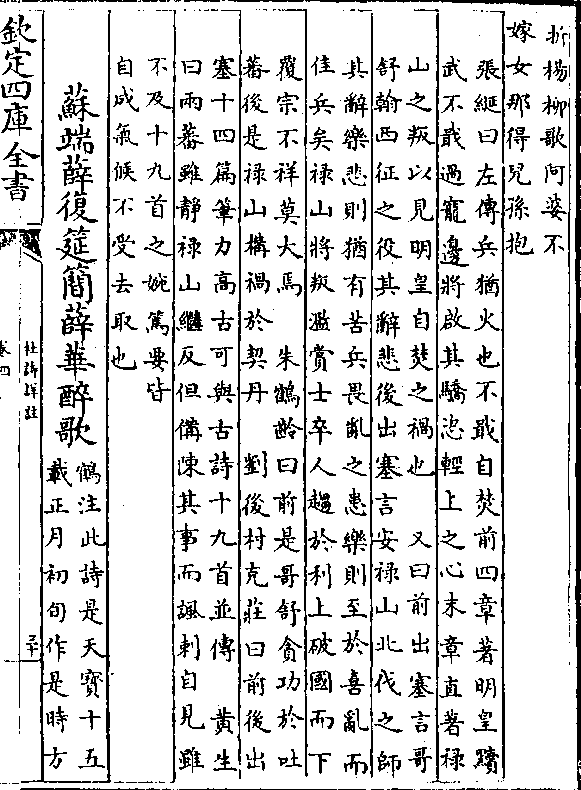 折楊柳歌阿婆不
嫁女那得兒孫抱
張綖曰左傳兵猶火也不戢自焚前四章著明皇黷
武不戢過寵邊將啟其驕恣輕上之心末章直著祿
山之叛以見明皇自焚之禍也　又曰前出塞言哥
舒翰西征之役其辭悲後出塞言安祿山北伐之師
其辭樂悲則猶有苦兵畏亂之患樂則至於喜亂而
佳兵矣祿山將叛濫賞士卒人趨於利上破國而下
覆宗不祥莫大焉　朱鶴齡曰前是哥舒貪功於吐
蕃後是祿山構禍於契丹　劉後村克莊曰前後出
塞十四篇筆力高古可與古詩十九首並傳　黃生
曰兩蕃雖靜祿山繼反但備陳其事而諷刺自見雖
不及十九首之婉篤要皆
自成氣候不受去取也
蘇端薛復筵簡薛華醉歌
鶴注此詩是天寶十五
載正月初旬作是時方
欽定四庫全書
杜詩詳註
卷四